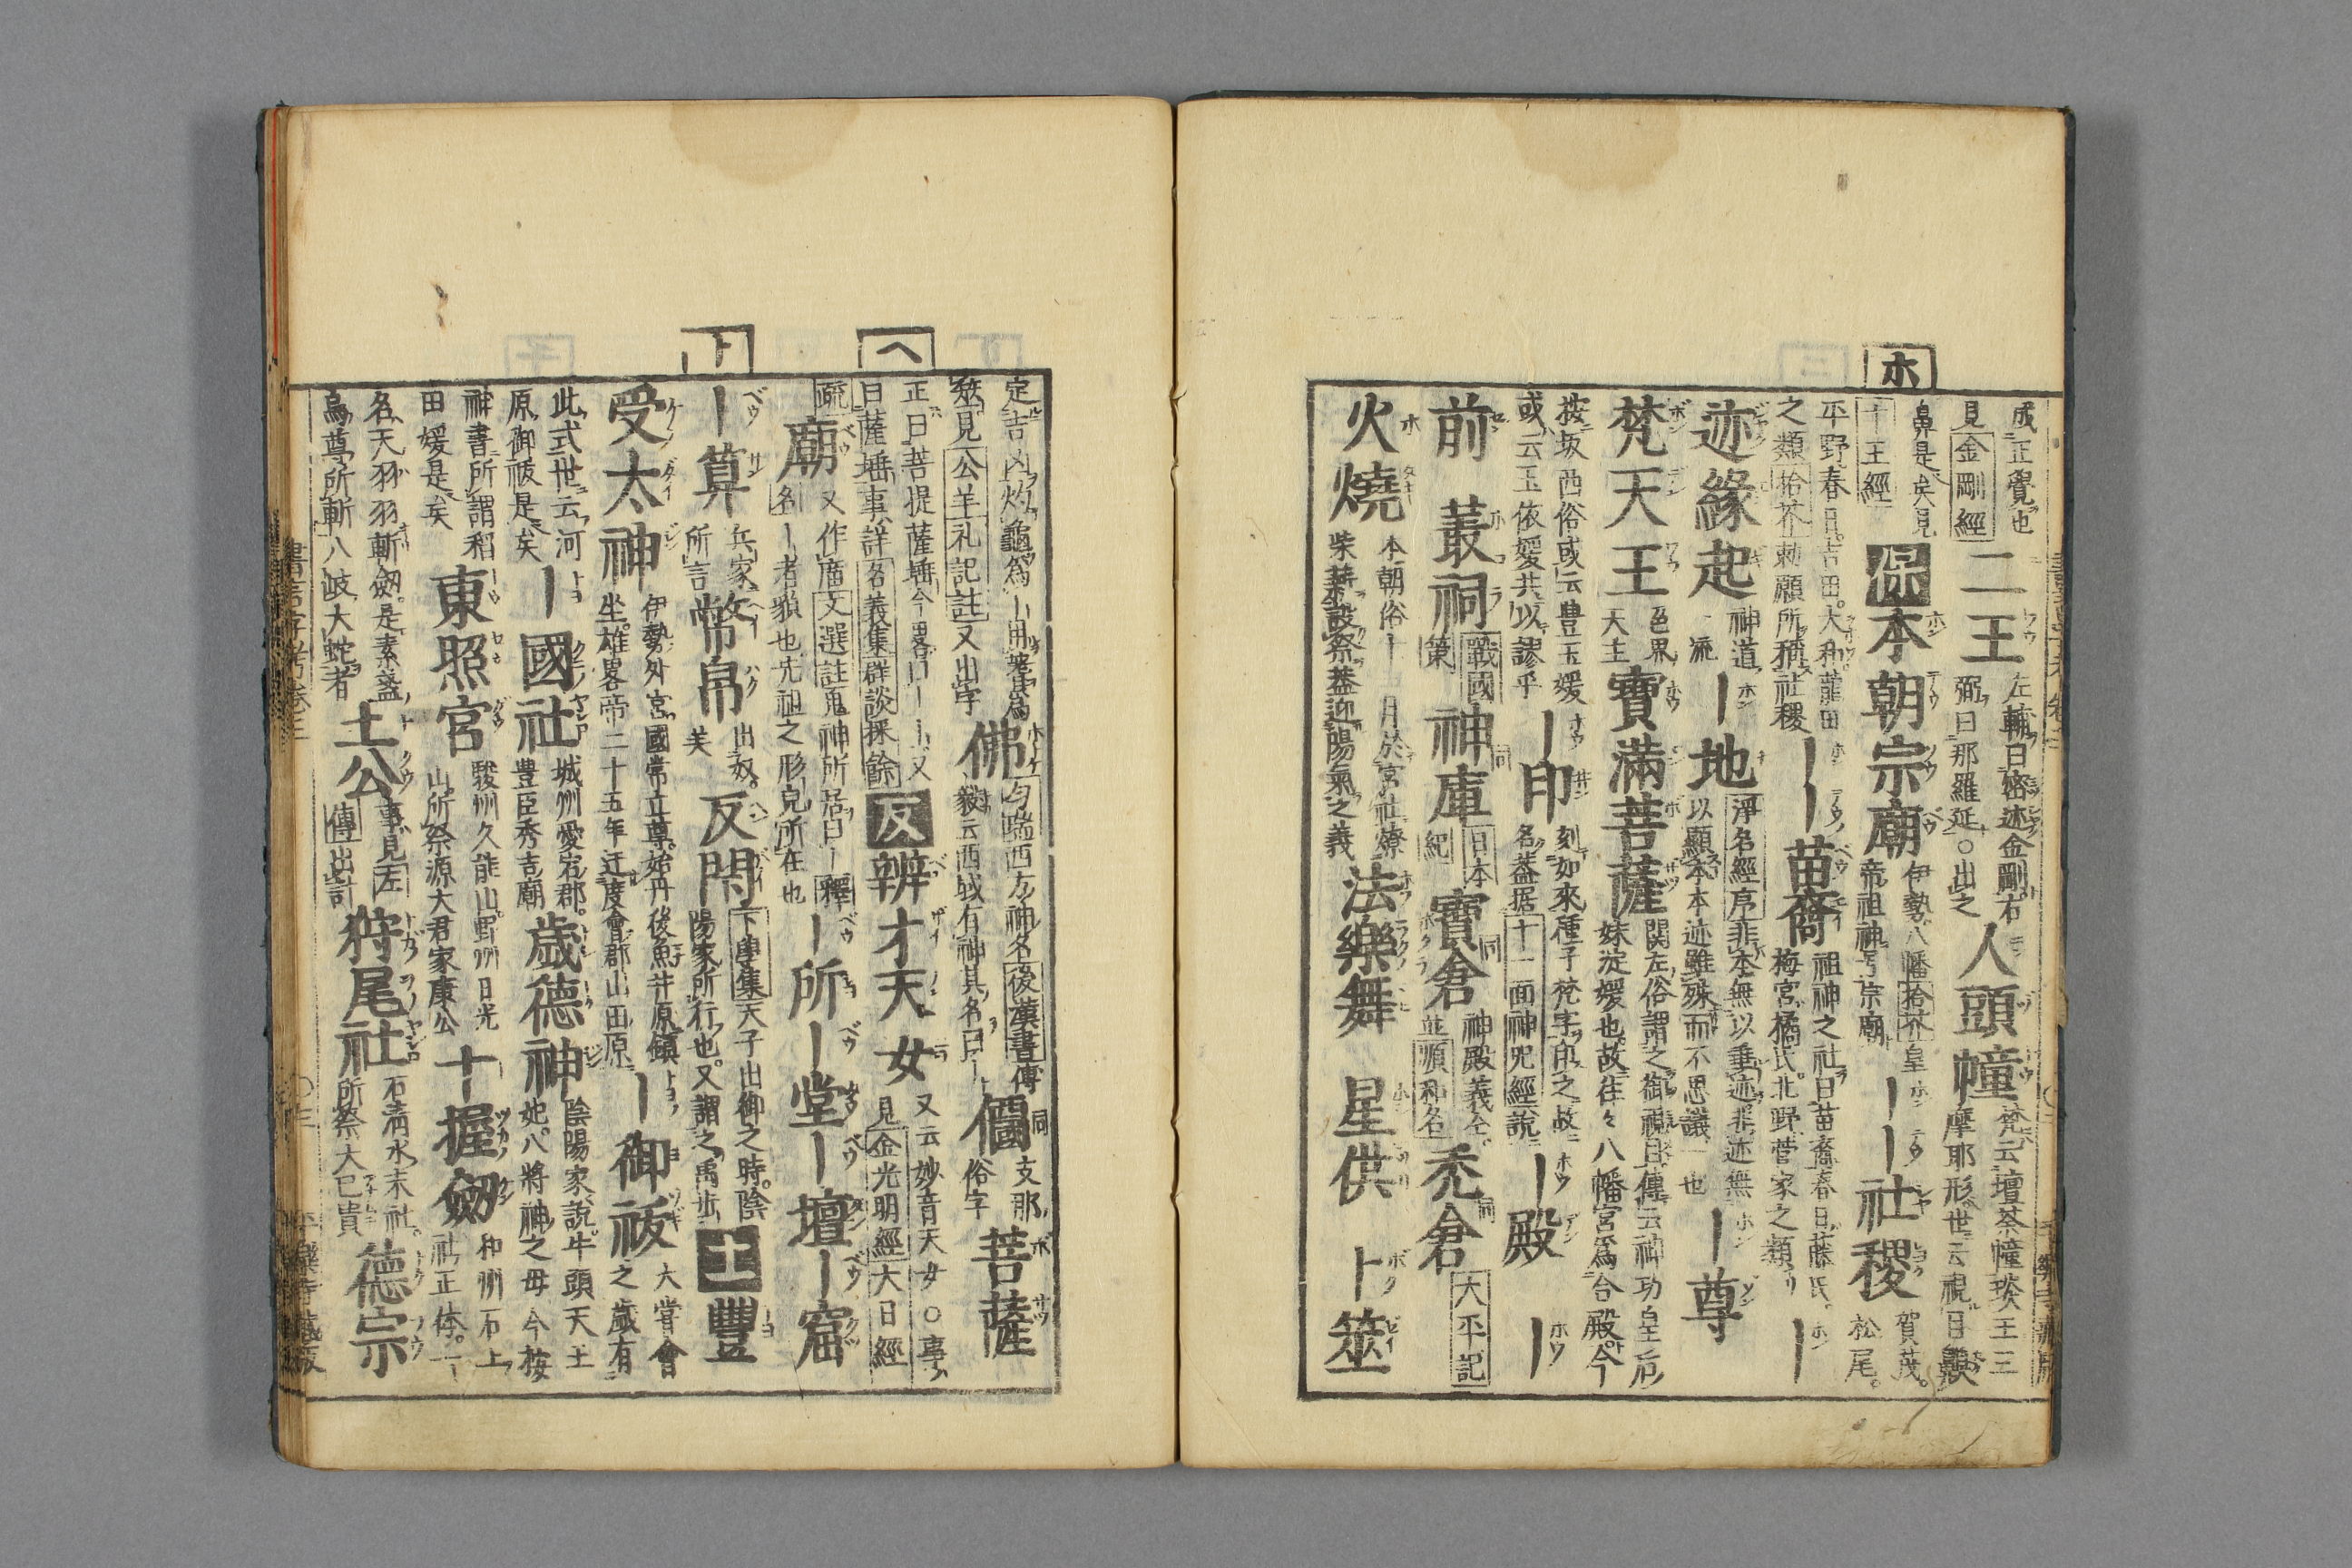 ホ
成正覺也
見金剛經
二王
左輔曰密迹金剛右
弼曰那羅延○出之
人頭幢
梵云壇荼幢琰王三
摩耶形世云視目
鼻是矣見
十王經
本朝宗廟
伊勢八幡拾芥皇
帝祖神号宗廟
｜｜社稷
賀茂松尾
平野春日吉田大和龍田
之類拾芥勅願所稱社稷
｜｜苗裔
祖神之社曰苗裔春日藤氏
梅宮橘氏北野菅家之類
｜
迹緣起
神道
一流
｜地
淨名經序非本無以垂迹非迹無
以顯本本迹雖殊而不思議一也
｜尊
梵天王
色界
天主
寶滿菩薩
關左俗謂之御視日傳云神功皇后
妹淀媛也故往々八幡宮爲合殿今
按坂西俗或云豊玉媛
或云玉依媛共以謬乎
｜印
刻如來種子梵字印之故
名蓋据十一面神呪經說
｜殿
｜
前
叢祠
戰國
策
神庫
日本
紀
寶倉
神殿義仝
並順和名
禿倉
大平記
火燒
本朝俗十一月於宮社燎
柴薪設祭蓋迎陽氣之義
法樂舞
星供
卜筮
定吉凶灼龜爲｜用蓍爲
筮見公羊礼記註又出字
佛
勻瑞西方神名後漢書傳
毅云西域有神其名曰｜
僊
支那
俗字
菩薩
ヘ
正曰菩提薩埵今畧曰｜｜又
曰薩埵事詳名義集群談採餘
辨才天女
又云妙音天女○事
見金光明經大日經
疏
廟
又作庿文選註鬼神所居曰｜釋
名｜者貌也先祖之形皃所在也
｜所
｜堂
｜壇
｜窟
ト
｜算
兵家
所言
幣帛
出奴
芙
反閇
下學集天子出御之時陰
陽家所行也又謂之禹步
豐
受太神
伊勢外宮國常立尊始丹後魚井原鎮
坐雄畧帝二十五年迁度會郡山田原
｜御祓
大嘗會
之歲有
此式世云河
原御祓是矣
｜國社
城州愛宕郡
豊臣秀吉廟
歳德神
陰陽家說牛頭天王
妃八將神之母今按
神書所謂稻
田媛是矣
東照宮
駿州久能山野州日光
山所祭源大君家康公
十握劔
和州石上
社正体一
名天羽羽斬劔是素盞
烏尊所斬八岐大蛇者
土公
事見左
傳出計
狩尾社
石清水末社
所祭大已貴
德宗
書言字考卷三